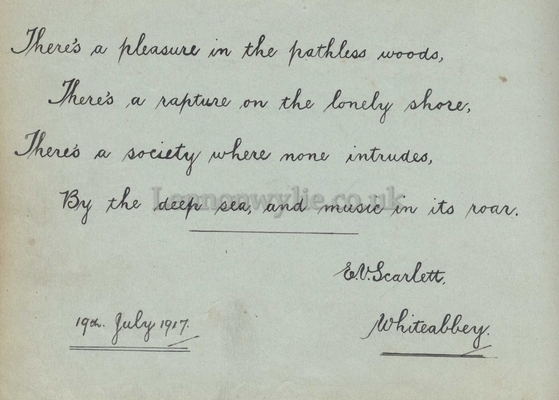 There's a pleasure in the pathless woods,
There's a rapture on the lonely shore,
There's a society where none intrudes,
By the deep sea, and music in its roar.
Lennonwylie.co.uk
E.V. Scarlett.
19th. July 1917.
Whiteabbey.